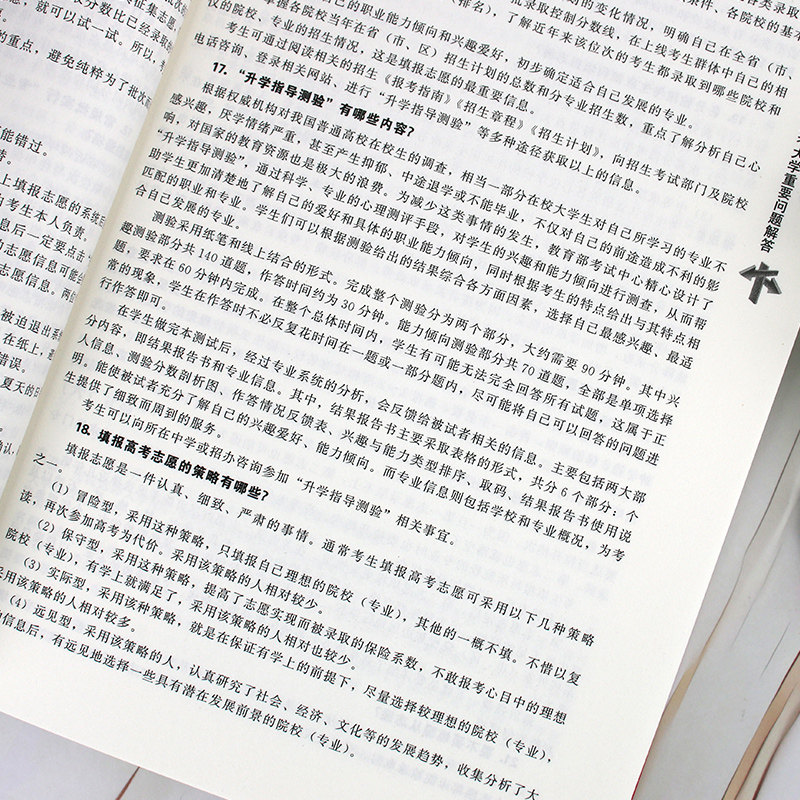 征集志愿
分数比已经录取
,就可以试一试。所以,考
的重点,避免纯粹为了批次而
能错过。
情。
上填报志愿的系统
由考生本人负责。
息后一定要点击“
志愿信息可能
志愿信息。两
被迫退出系
在纸上,
错误。
夏天的
条件、各院校的基本
的变化情况,明确自己在全省(市、
录控制分数线,在上线考生群体中自己的相
(排名),了解近年来该位次的考生都录取到哪些院校和
自己的职业能力倾向和兴趣爱好,初步确定适合自己发展的专业。
掌握各院校当年在省(市、区)招生计划的总数和分专业招生数,重点了解分析自己心
仪的院校、专业的招生情况,这是填报志愿的最重要信息。
考生可通过阅读相关的招生《报考指南》《招生章程》《招生计划》,向招生考试部门及院校
电话咨询、登录相关网站、进行“升学指导测验”等多种途径获取以上的信息。
17. “升学指导测验”有哪些内容?
根据权威机构对我国普通高校在校生的调查,相当一部分在校大学生对自己所学习的专业不
感兴趣,厌学情绪严重,甚至产生抑郁、中途退学或不能毕业,不仅对自己的前途造成不利的影
响,对国家的教育资源也是极大的浪费。为减少这类事情的发生,教育部考试中心精心设计了
“升学指导测验”,通过科学、专业的心理测评手段,对学生的兴趣和能力倾向进行测查,从而帮
助学生更加清楚地了解自己的爱好和具体的职业能力倾向,同时根据考生的特点给出与其特点相
匹配的职业和专业。学生们可以根据测验给出的结果综合各方面因素,选择自己最感兴趣、最适
合自己发展的专业。
测验采用纸笔和线上结合的形式。完成整个测验分为两个部分,大约需要 90 分钟。其中兴
趣测验部分共 140 道题,作答时间约为 30 分钟。能力倾向测验部分共 70 道题,全部是单项选择
题,要求在 60 分钟内完成。在整个总体时间内,学生有可能无法完全回答所有试题,这属于正
常的现象,学生在作答时不必反复花时间在一题或一部分题内,尽可能将自己可以回答的问题进
行作答即可。
在学生做完本测试后,经过专业系统的分析,会反馈给被试者相关的信息。主要包括两大部
分内容,即结果报告书和专业信息。其中,结果报告书主要采取表格的形式,共分 6 个部分:个
人信息、测验分数剖析图、作答情况反馈表、兴趣与能力类型排序、取码、结果报告书使用说
明。能使被试者充分了解自己的兴趣爱好、能力倾向。而专业信息则包括学校和专业概况,为考
生提供了细致而周到的服务。
考生可以向所在中学或招办咨询参加“升学指导测验”相关事宜。
18. 填报高考志愿的策略有哪些?
填报志愿是一件认真、细致、严肃的事情。通常考生填报高考志愿可采用以下几种策略
之一。
(1)冒险型,采用这种策略,只填报自己理想的院校(专业),其他的一概不填。不惜以复
读,再次参加高考为代价。采用该策略的人相对较少。
(2)保守型,采用这种策略,提高了志愿实现而被录取的保险系数,不敢报考心目中的理想
院校(专业),有学上就满足了,采用该策略的人相对也较少。
(3)实际型,采用该种策略,就是在保证有学上的前提下,尽量选择较理想的院校(专业),
采用该策略的人相对较多。
(4)远见型,采用该策略的人,认真研究了社会、经济、文化等的发展趋势,收集分析了大
信息后,有远见地选择一些具有潜在发展前景的院校(专业)。
大学重要问题解答